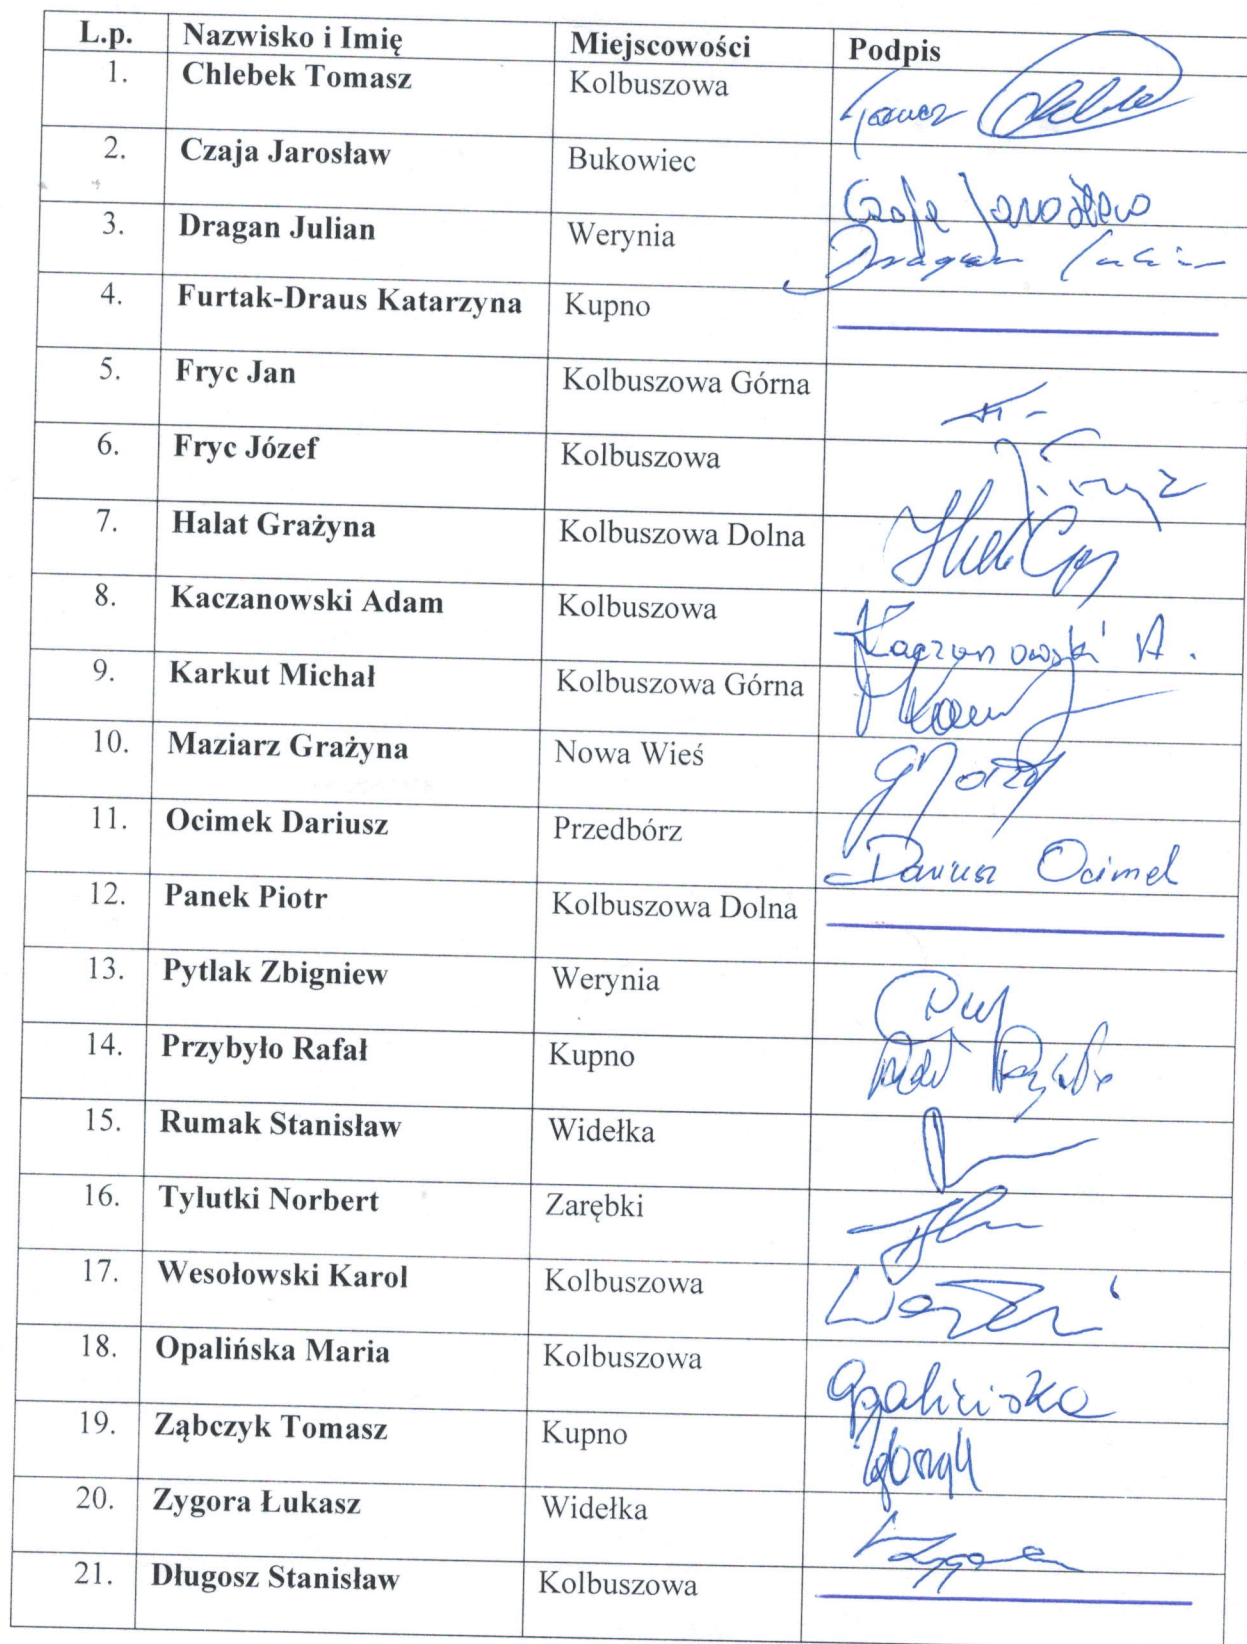 L.p. Nazwisko i Imię Miejscowości Podpis
1. Chlebek Tomasz Kolbuszowa Tomasz
2. Czaja Jarosław Bukowiec Czaja Jarosław
3. Dragan Julian Werynia Dragan Julian
4. Furtak-Draus Katarzyna Kupno
5. Fryc Jan Kolbuszowa Górna
6. Fryc Józef Kolbuszowa
7. Halat Grażyna Kolbuszowa Dolna
8. Kaczanowski Adam Kolbuszowa Kaczanowski A.
9. Karkut Michał Kolbuszowa Górna
10. Maziarz Grażyna Nowa Wieś
11. Ocimek Dariusz Przedbórz Dariusz Ocimek
12. Panek Piotr Kolbuszowa Dolna
13. Pytlak Zbigniew Werynia
14. Przybyło Rafał Kupno
15. Rumak Stanisław Widełka
16. Tylutki Norbert Zarębki
17. Wesołowski Karol Kolbuszowa
18. Opalińska Maria Kolbuszowa Opalińska
19. Ząbczyk Tomasz Kupno Ząbczyk
20. Zygora Łukasz Widełka
21. Długosz Stanisław Kolbuszowa